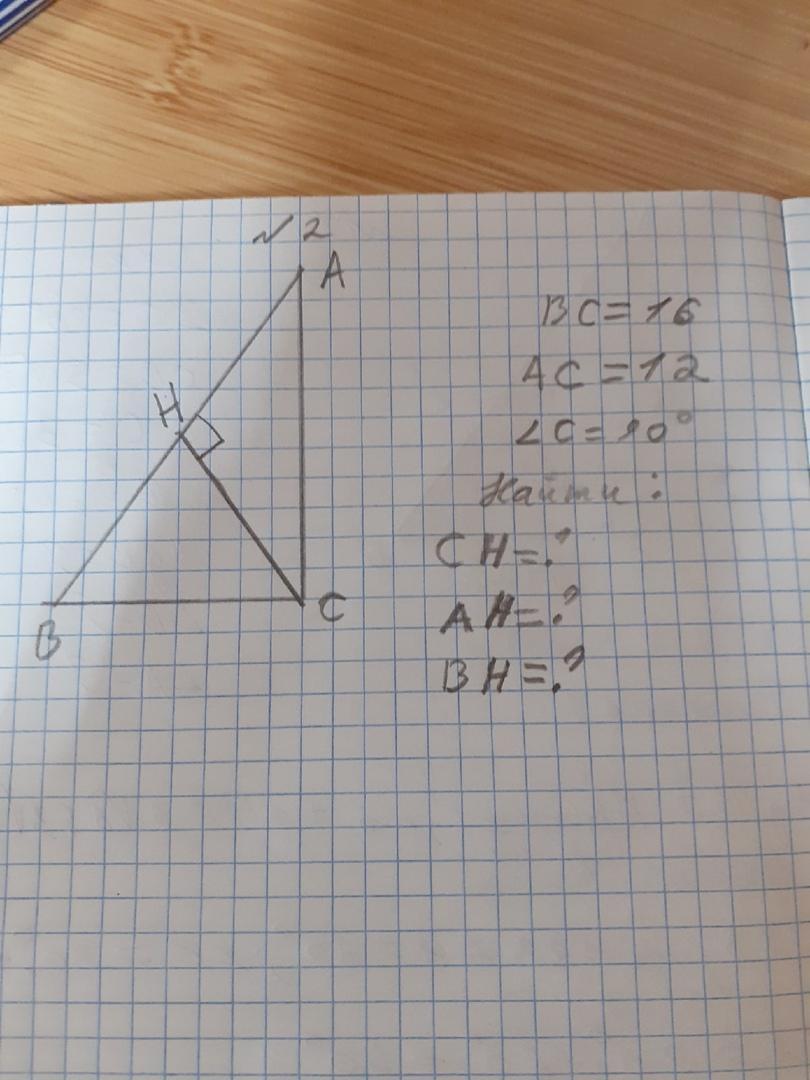 №2
A
H
B
C
BC=16
AC=12
∠C=90°
Найти:
CH=?
AH=?
BH=?